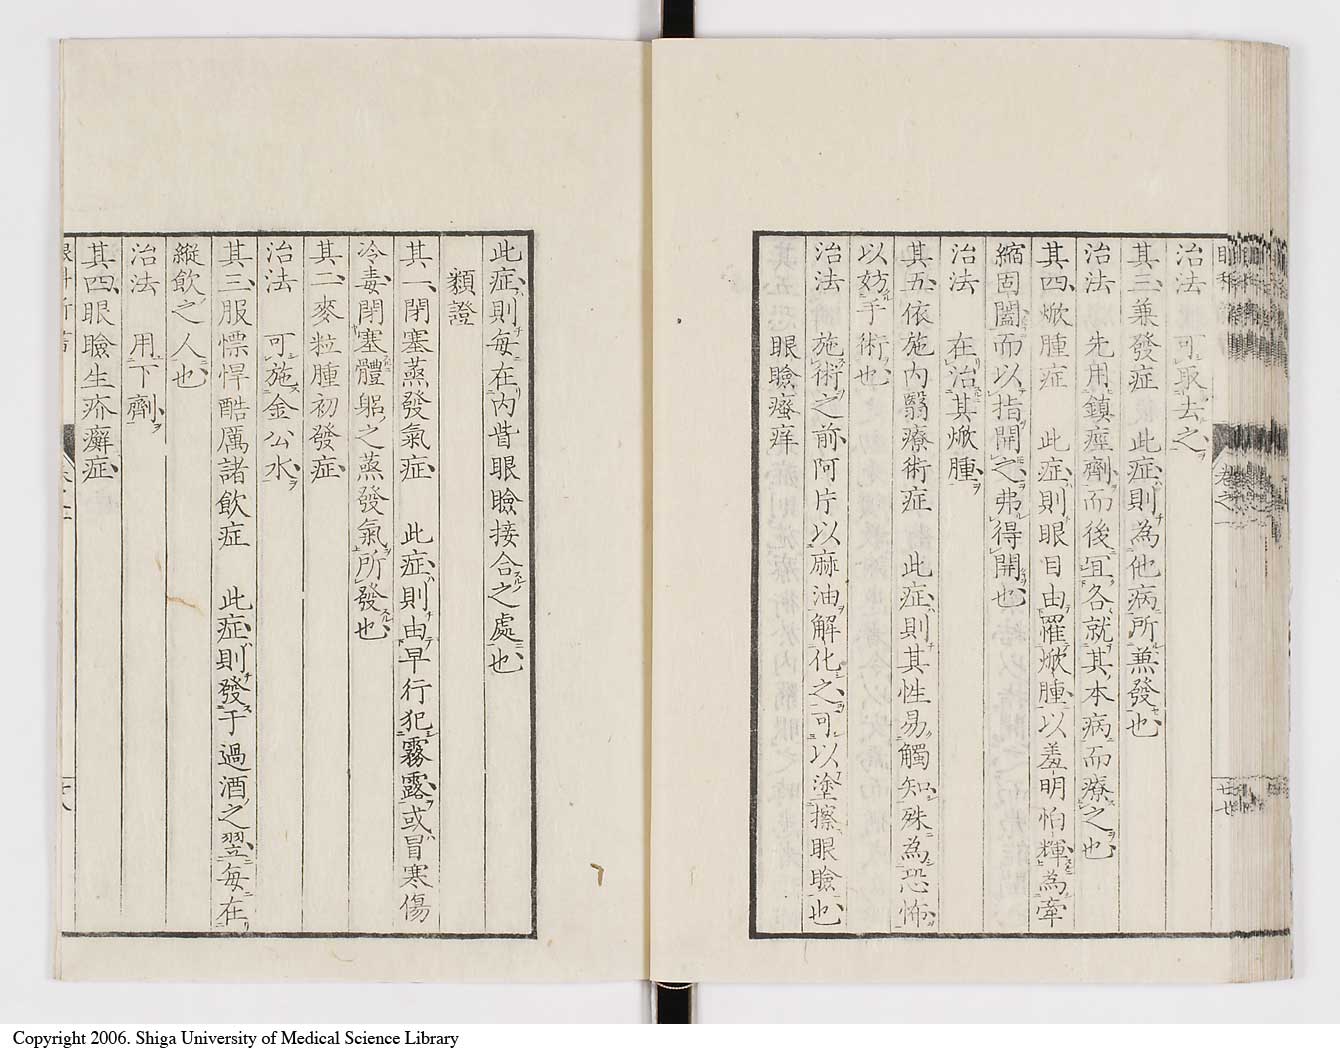 治法　可取去之
其三兼發症　此症則為他病所兼發也
治法　先用鎮痙劑而後宜各就其本病而療之也
其四焮腫症　此症則眼目由罹焮腫以羞明怕輝為牽
縮固闔而以指開之弗得開也
治法　在治其焮腫
其五依施内翳療術症　此症則其性易觸知殊為恐怖
以妨手術也
治法　施術之前阿片以麻油解化之可以塗擦眼瞼也
眼瞼瘙痒
此症則每在内眥眼瞼接合之處也
類證
其一閉塞蒸發氣症　此症則由早行犯霧露或冒寒傷
冷毒閉塞體軀之蒸發氣所發也
其二麥粒腫初發症
治法　可施金公水
其三服慓悍酷厲諸飲症　此症則發于過酒之翌每在
縱飲之人也
治法　用下劑
其四眼瞼生疥癬症
Copyright 2006. Shiga University of Medical Science Library